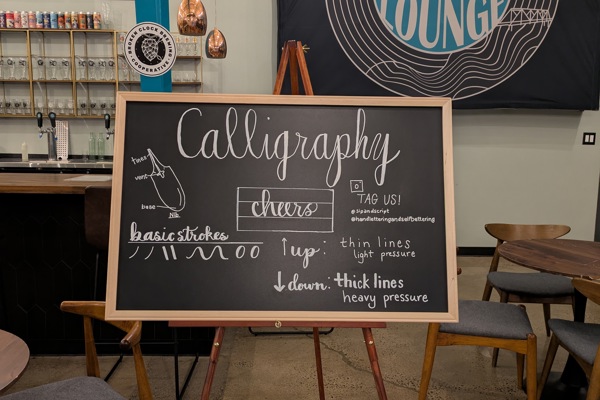 LOUNGE
BROKEN CLOCK BREWING
COOPERATIVE
Calligraphy
tines
vent
base
Nib
cheers
TAG US!
@sipandscript
@handletteringandselfbettering
basic strokes
↑up: thin lines
light pressure
↓down: thick lines
heavy pressure